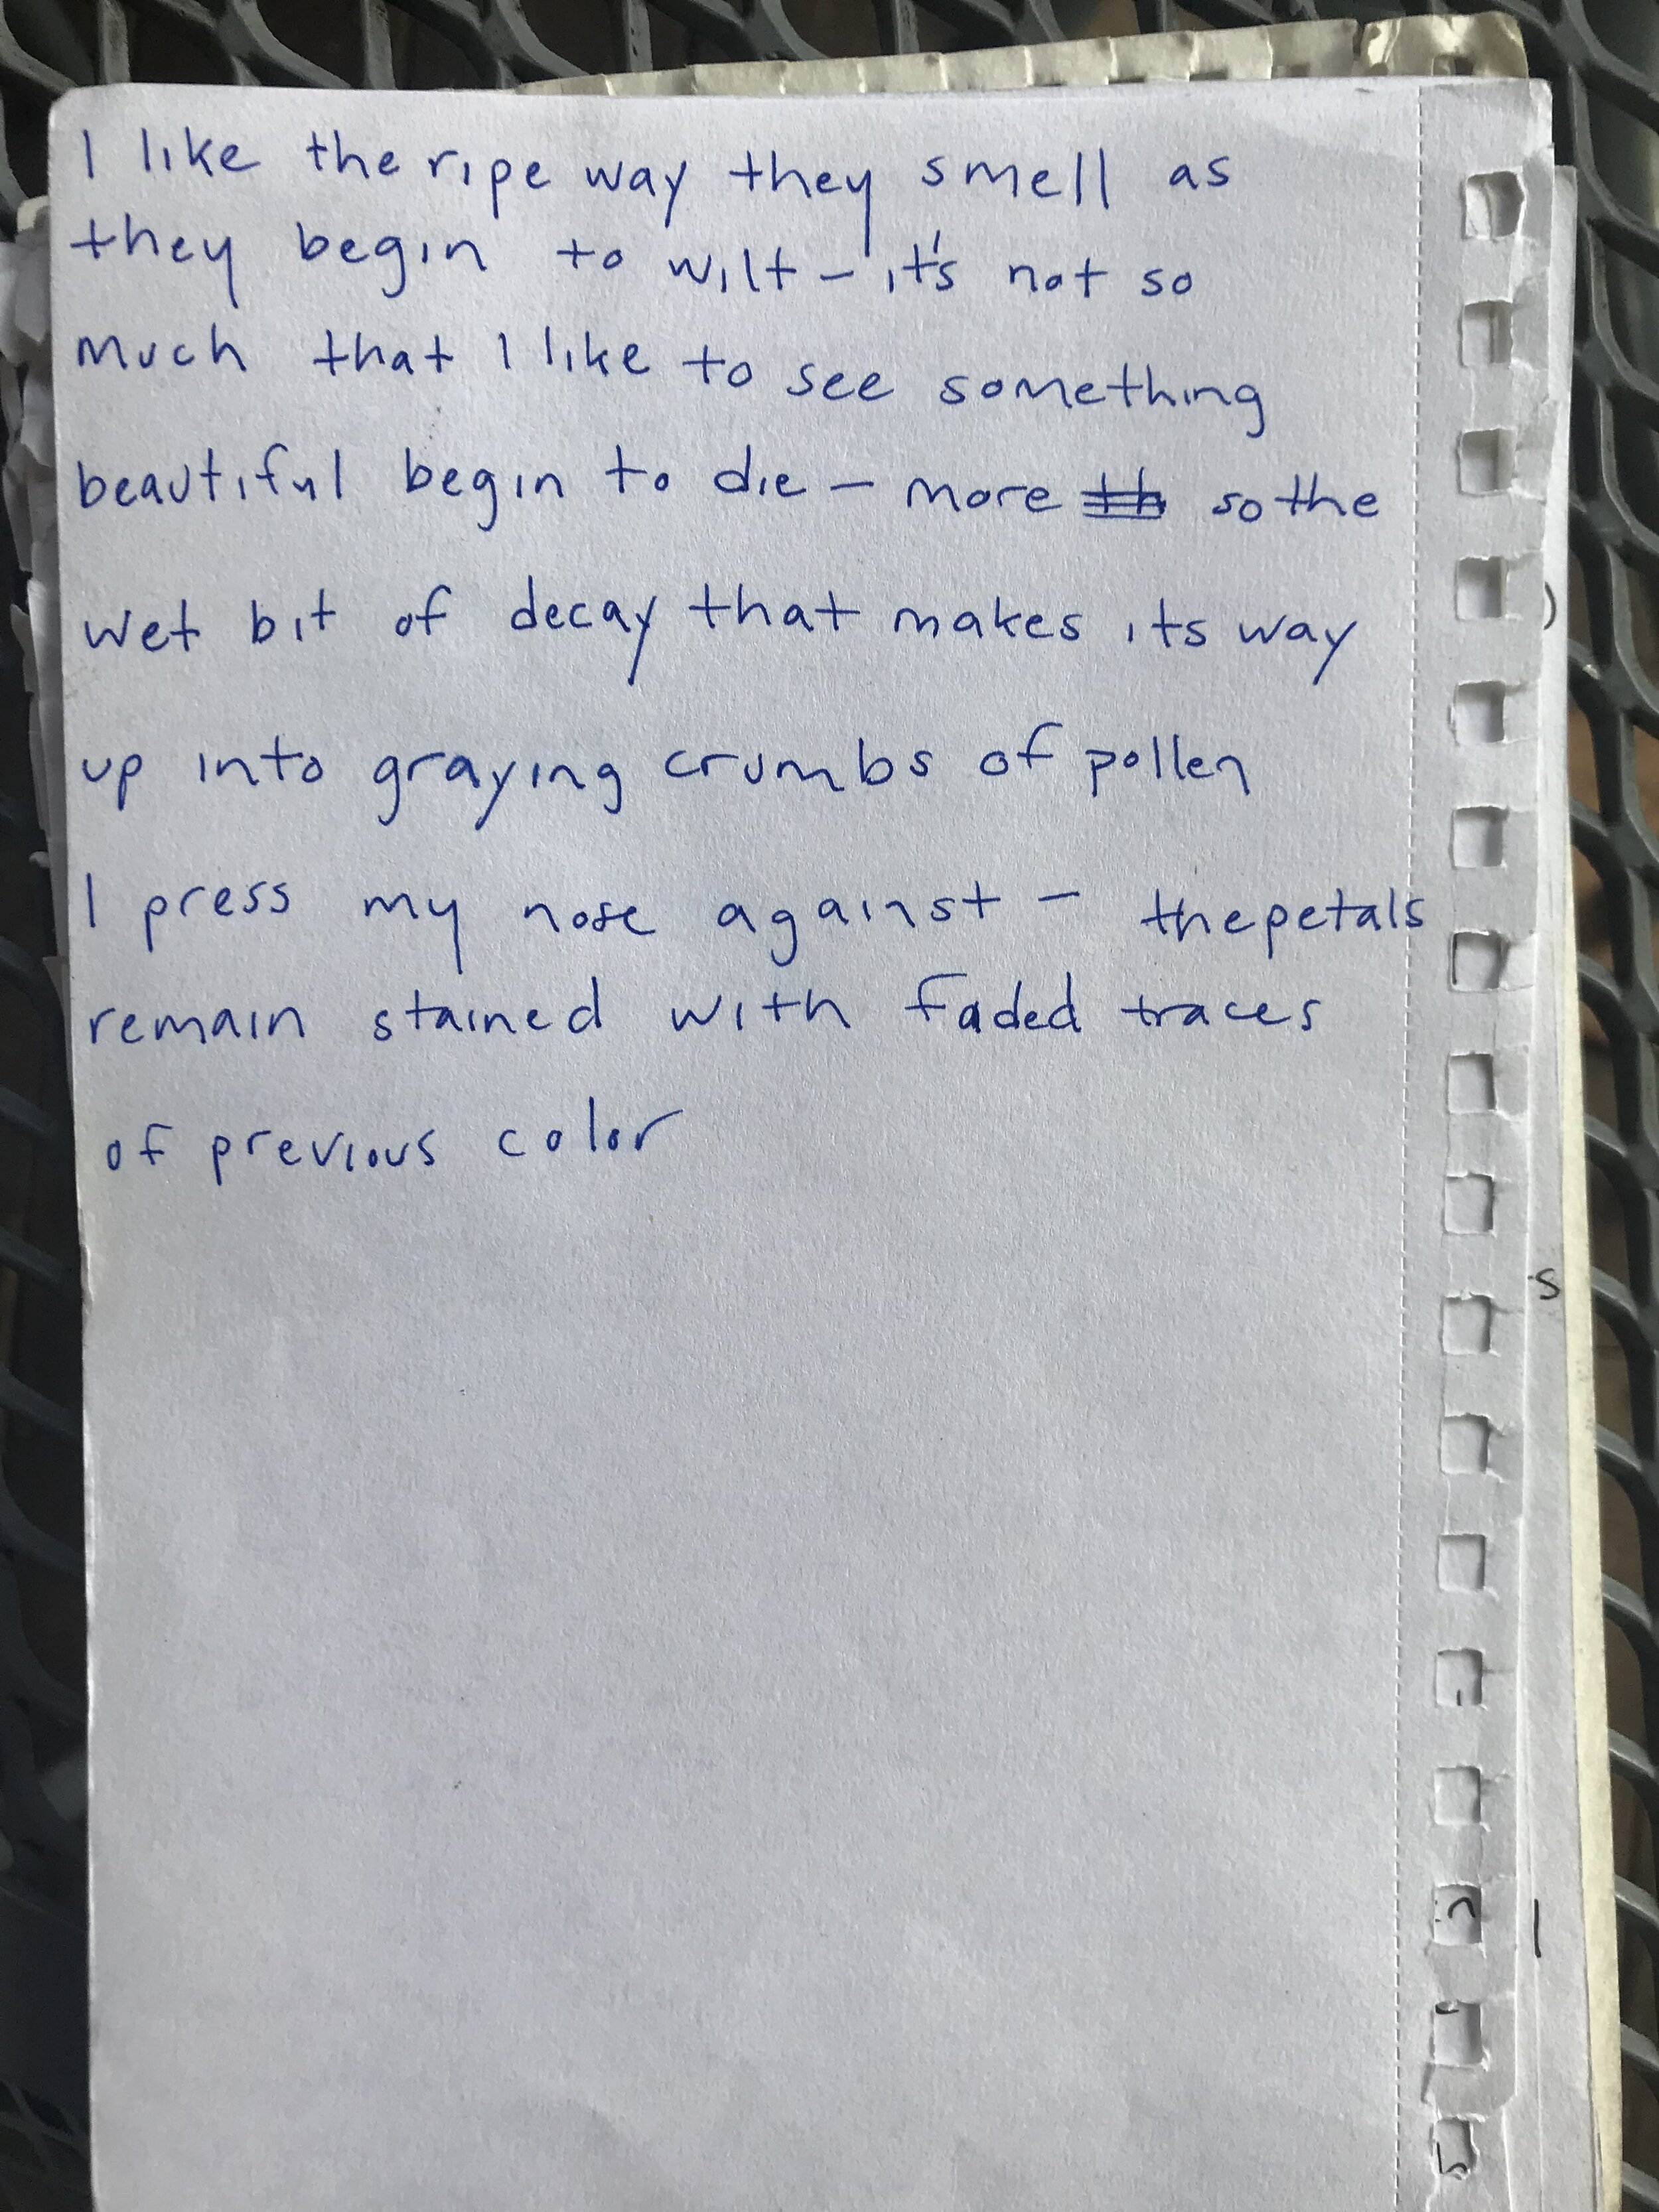 I like the ripe way they smell as
they begin to wilt – it's not so
much that I like to see something
beautiful begin to die – more so the
wet bit of decay that makes its way
up into graying crumbs of pollen
I press my nose against – the petals
remain stained with faded traces
of previous color